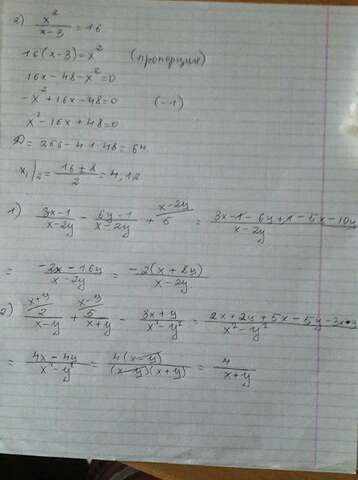 2) x²/(x-3) = 16
16(x-3) = x² (пропорция)
16x - 48 - x² = 0
-x² + 16x - 48 = 0 (-1)
x² - 16x + 48 = 0
D = 256 - 4·1·48 = 64
x₁/₂ = (16 ± 8)/2 = 4, 12
1) (3x-1)/(x-2y) - (6y-1)/(x-2y) + 5 ^(x-2y) = (3x-1-6y+1-5x-10y)/(x-2y)
= (-2x-16y)/(x-2y) = -2(x+8y)/(x-2y)
2) ^(x+y) 2/(x-y) + ^(x-y) 5/(x+y) - (3x+y)/(x²-y²) = (2x+2y+5x-5y-3x-y)/(x²-y²)
= (4x-4y)/(x²-y²) = 4(x-y)/((x-y)(x+y)) = 4/(x+y)